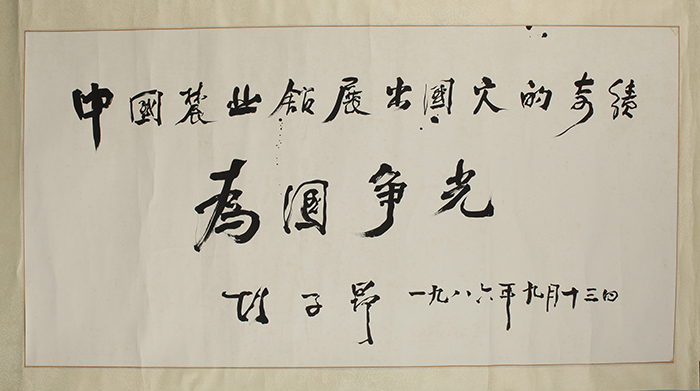 中國農业館展出國的奇績
為國争光
胡子昂 一九八六年九月十三日